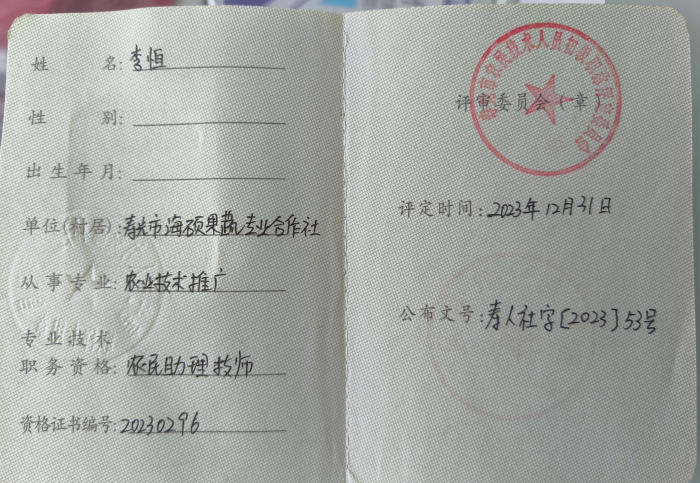 姓名:李恒
性别:
出生年月:
单位(村居):寿光市海硕果蔬专业合作社
从事专业:农业技术推广
专业技术
职务资格:农民助理技师
资格证书编号:20230296
评审委员会(章)
评定时间:2023年12月31日
公布文号:寿人社字[2023]53号